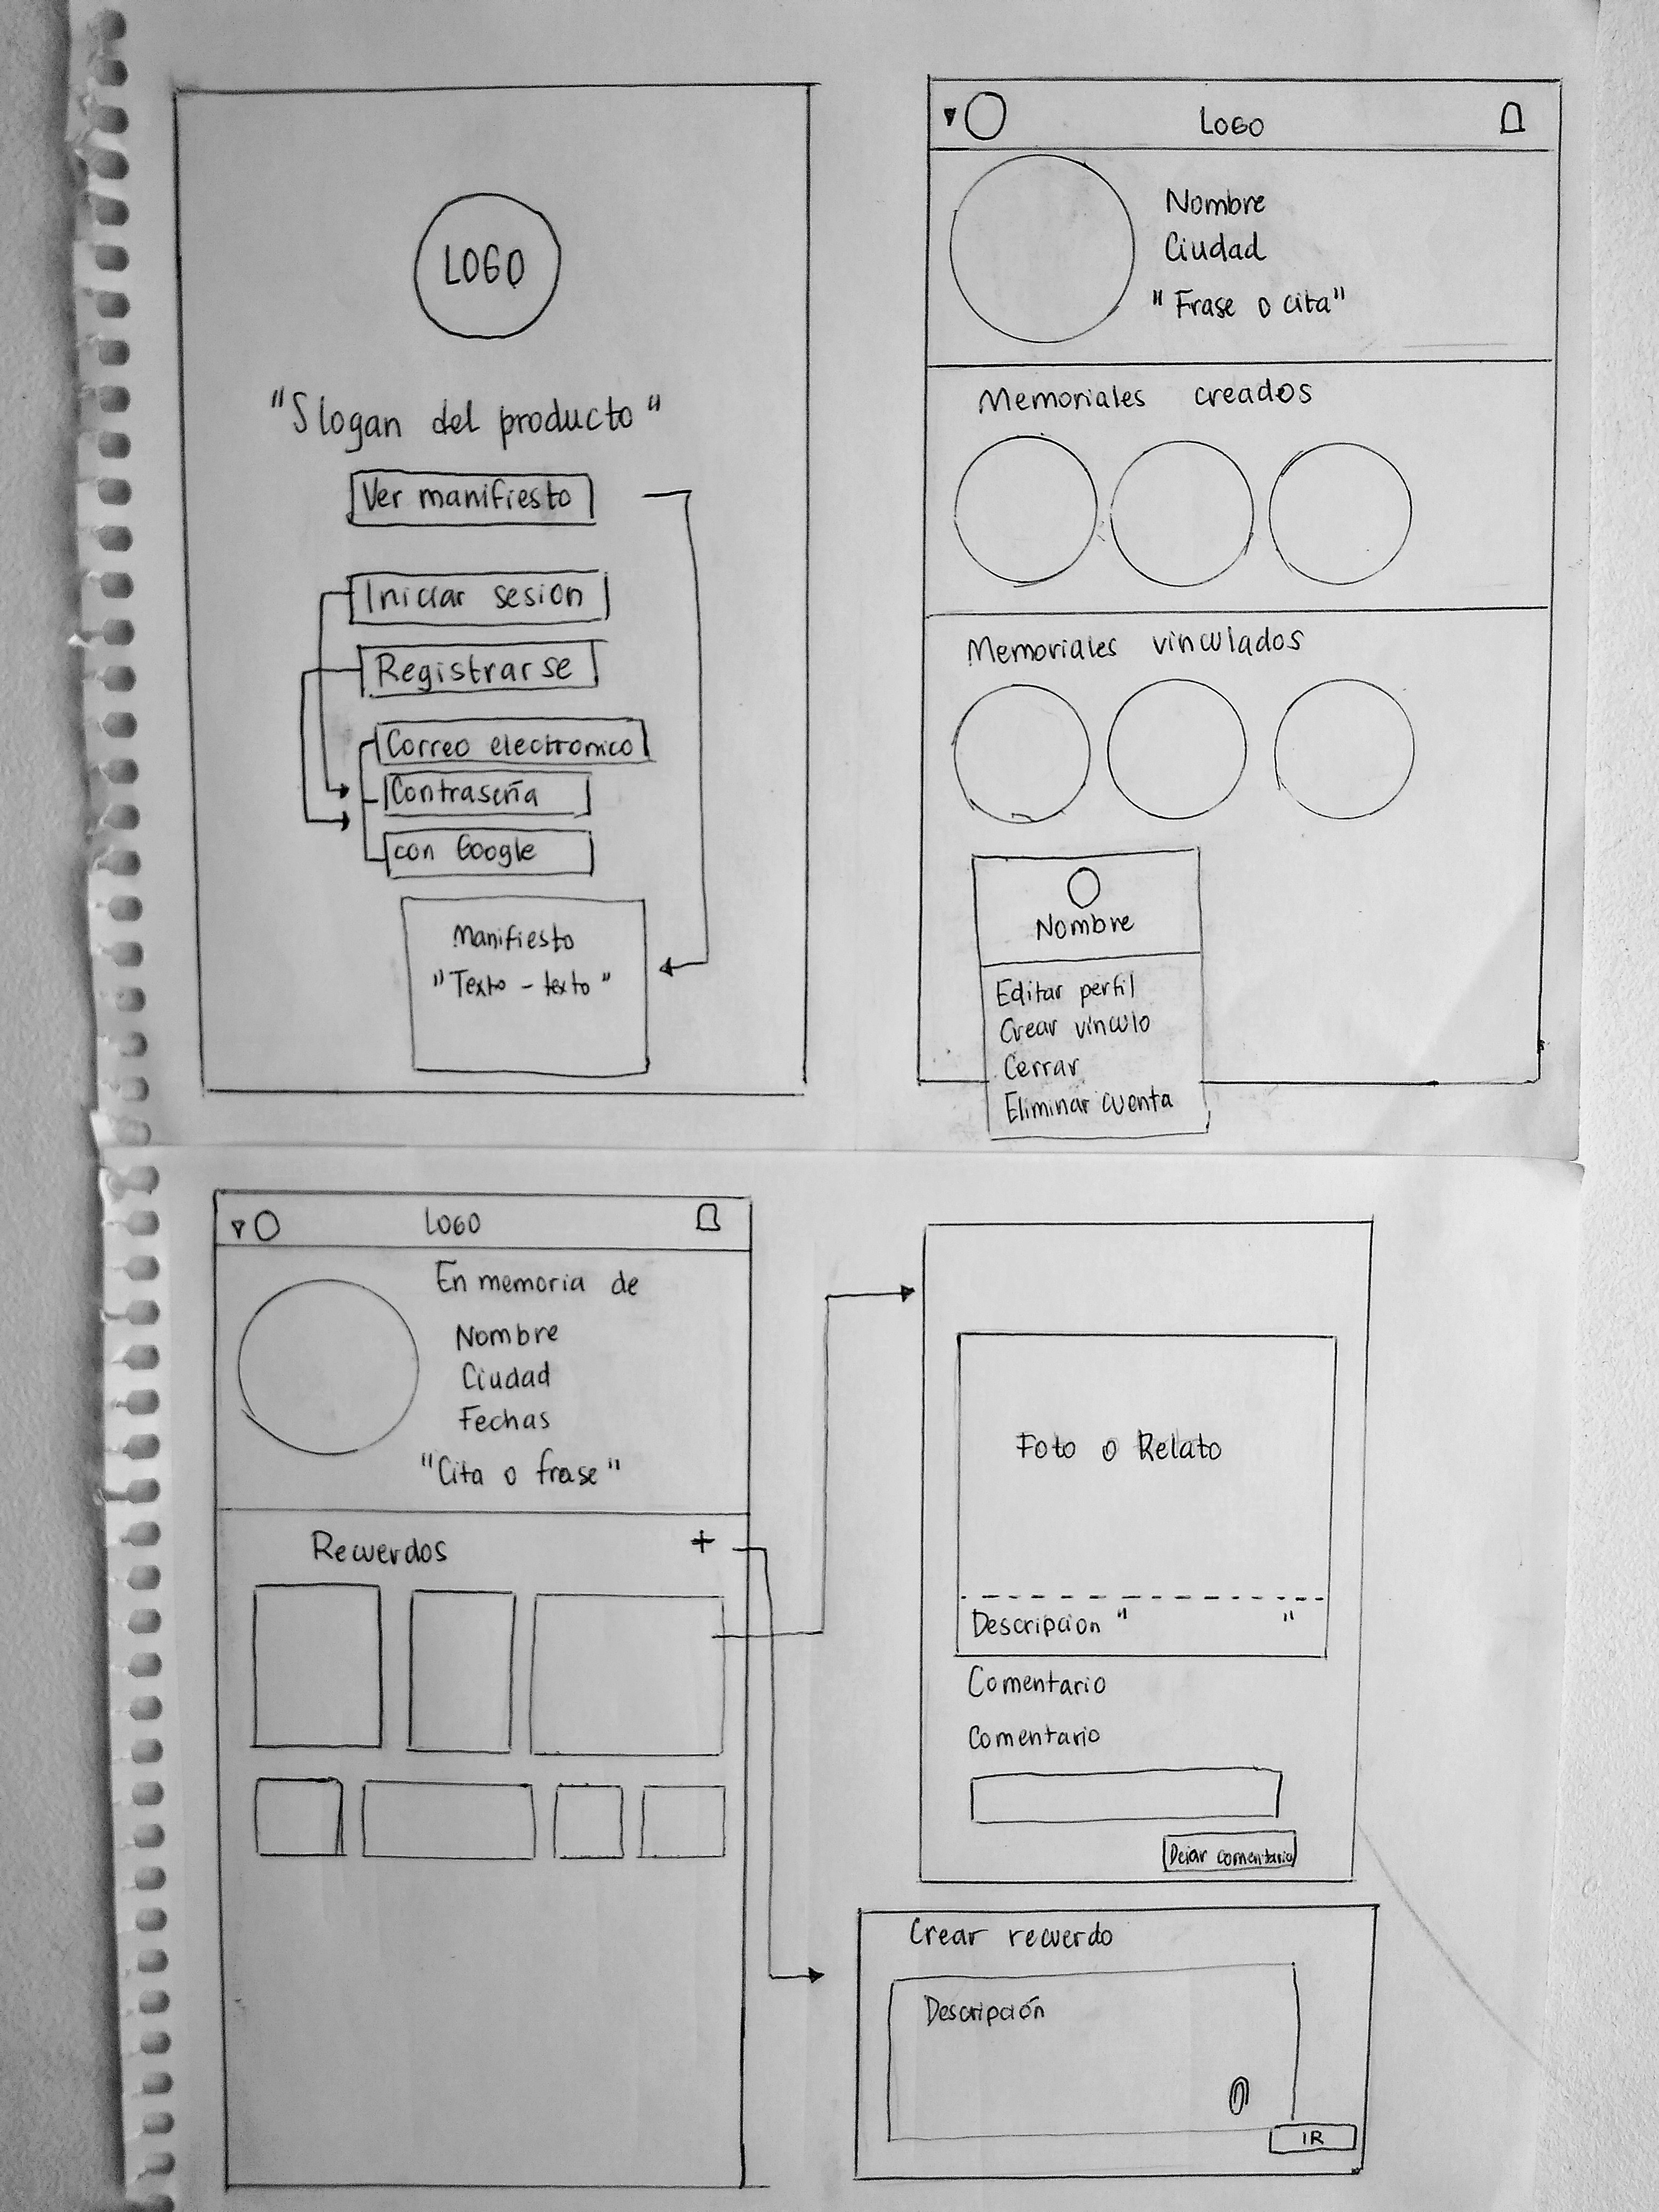 LOGO
"Slogan del producto"
Ver manifiesto
Iniciar sesion
Registrarse
Correo electronico
Contraseña
con Google
Manifiesto
"Texto - texto"
LOGO
Nombre
Ciudad
"Frase o cita"
Memoriales creados
Memoriales vinculados
Nombre
Editar perfil
Crear vinculo
Cerrar
Eliminar cuenta
LOGO
En memoria de
Nombre
Ciudad
Fechas
"Cita o frase"
Recuerdos +
Foto o Relato
Descripcion " "
Comentario
Comentario
Dejar comentario
Crear recuerdo
Descripción
IR